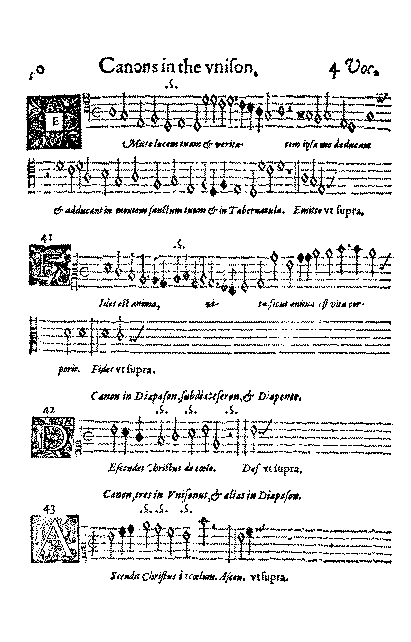 ,0 Canons in the vnison. 4 Voc.
.S.
E Mitte lucem tuam & verita- tem ipsa me deducant
& adducant in montem sanctum tuum & in Tabernacula. Emitte vt supra.
41
.S.
F Ides est anima, vi- ta sicut anima est vita cor-
poris. Fides vt supra.
Canon in Diapason, subdiatesseron, & Diapente.
42 .S. .S. .S.
D Escendet Christus de cœlo. Des vt supra.
Canon, tres in Vnisonus, & alias in Diapason.
43 .S. .S. .S.
A Scendit Christus in cœlum. Ascen. vt supra.